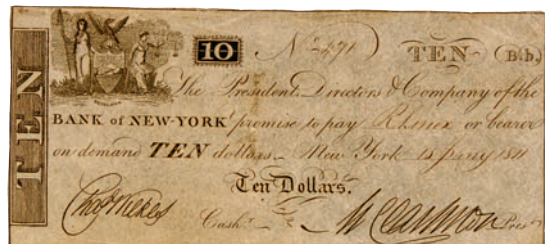 10 No 2471 TEN (B.b.)
The President, Directors & Company of the
BANK of NEW-YORK promise to pay or bearer
on demand TEN dollars New York 15 1811
Ten Dollars.
Cashr. Prest.
TEN